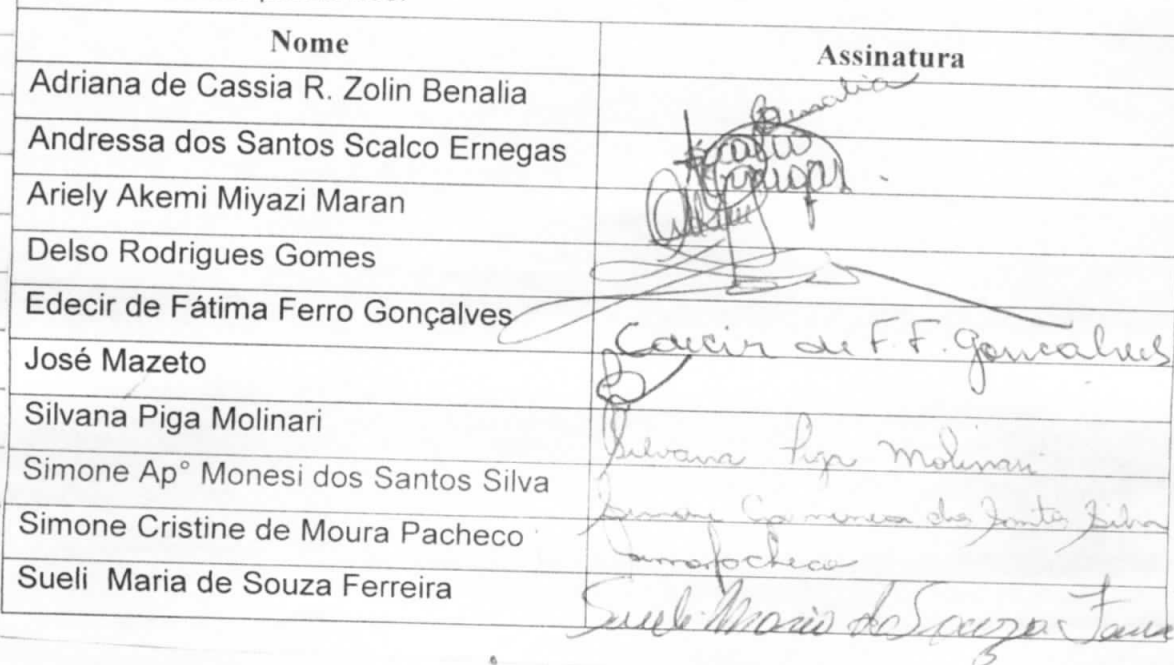 Nome Assinatura
Adriana de Cassia R. Zolin Benalia Benalia
Andressa dos Santos Scalco Ernegas Scalco Ernegas
Ariely Akemi Miyazi Maran
Delso Rodrigues Gomes
Edecir de Fátima Ferro Gonçalves Edecir de F. F. Gonçalves
José Mazeto
Silvana Piga Molinari Silvana Piga Molinari
Simone Ap° Monesi dos Santos Silva Simone dos Santos Silva
Simone Cristine de Moura Pacheco
Sueli Maria de Souza Ferreira Sueli Maria de Souza